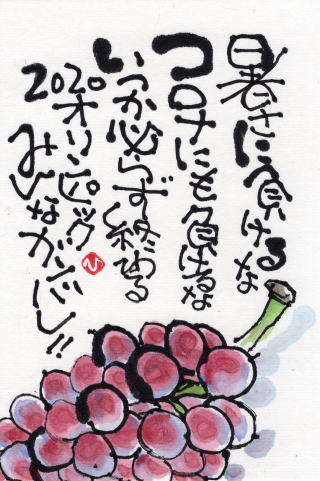 暑さに負けるな
コロナにも負けるな
いつか必ず終わる
2020オリンピック
みんなガンバレ!!
ひ